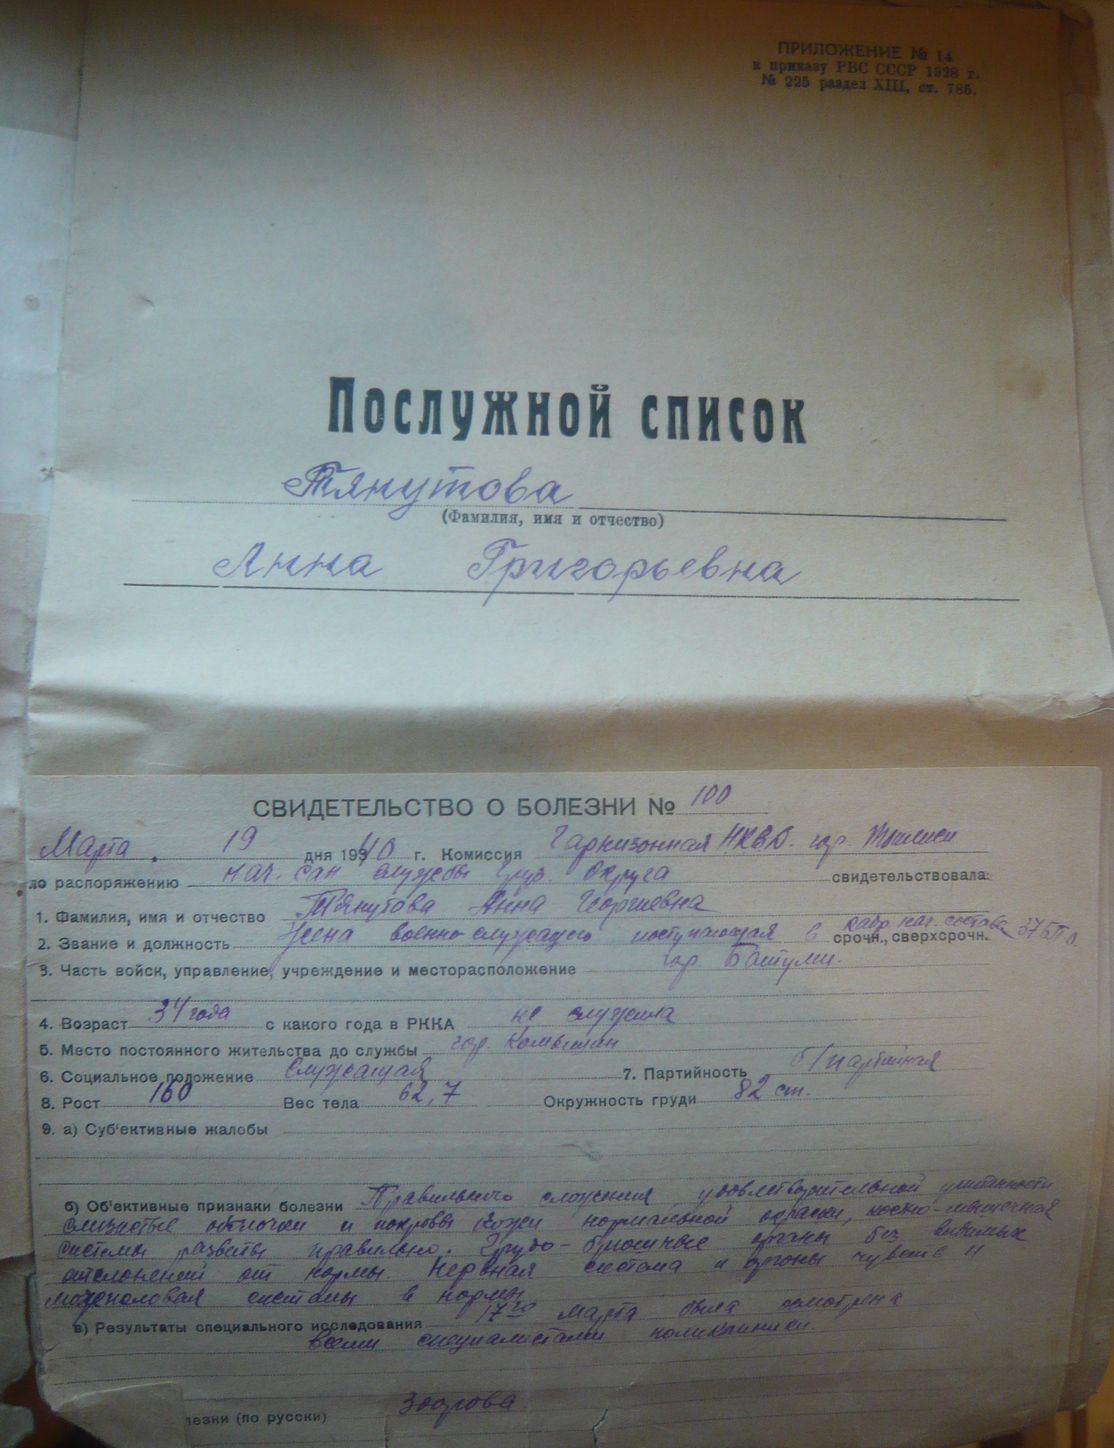 ПРИЛОЖЕНИЕ № 14
к приказу РВС СССР 1928 г.
№ 225 раздел XIII, ст. 785.
Послужной список
Тянутова
(Фамилия, имя и отчество)
Анна Григорьевна
СВИДЕТЕЛЬСТВО О БОЛЕЗНИ № 100
Марта 19 дня 1940 г. Комиссия Гарнизонная НКВД. гор. Тбилиси
по распоряжению нач. сан службы Груз. Округа свидетельствовала:
1. Фамилия, имя и отчество Тянутова Анна Георгиевна
2. Звание и должность Жена военно-служащего поступающая в кадр. нач. состава 37 срочн., сверхсрочн.
3. Часть войск, управление, учреждение и месторасположение гор. Батуми.
4. Возраст 34 года с какого года в РККА не служила
5. Место постоянного жительства до службы гор.
6. Социальное положение Служащая 7. Партийность б/партийная
8. Рост 160 Вес тела 62,7 Окружность груди 82 ст.
9. а) Суб'ективные жалобы
б) Об'ективные признаки болезни Правильного сложения удовлетворительной упитанности
слизистые оболочки и покровы кожи нормальной окраски, костно-мышечная
система развиты правильно. Грудо-брюшные органы без видимых
отклонений от нормы. Нервная система и органы чувств и
мочеполовая системы в норме
в) Результаты специального исследования 17го Марта была осмотрена
всеми специалистами поликлиники.
лезни (по русски) Здорова